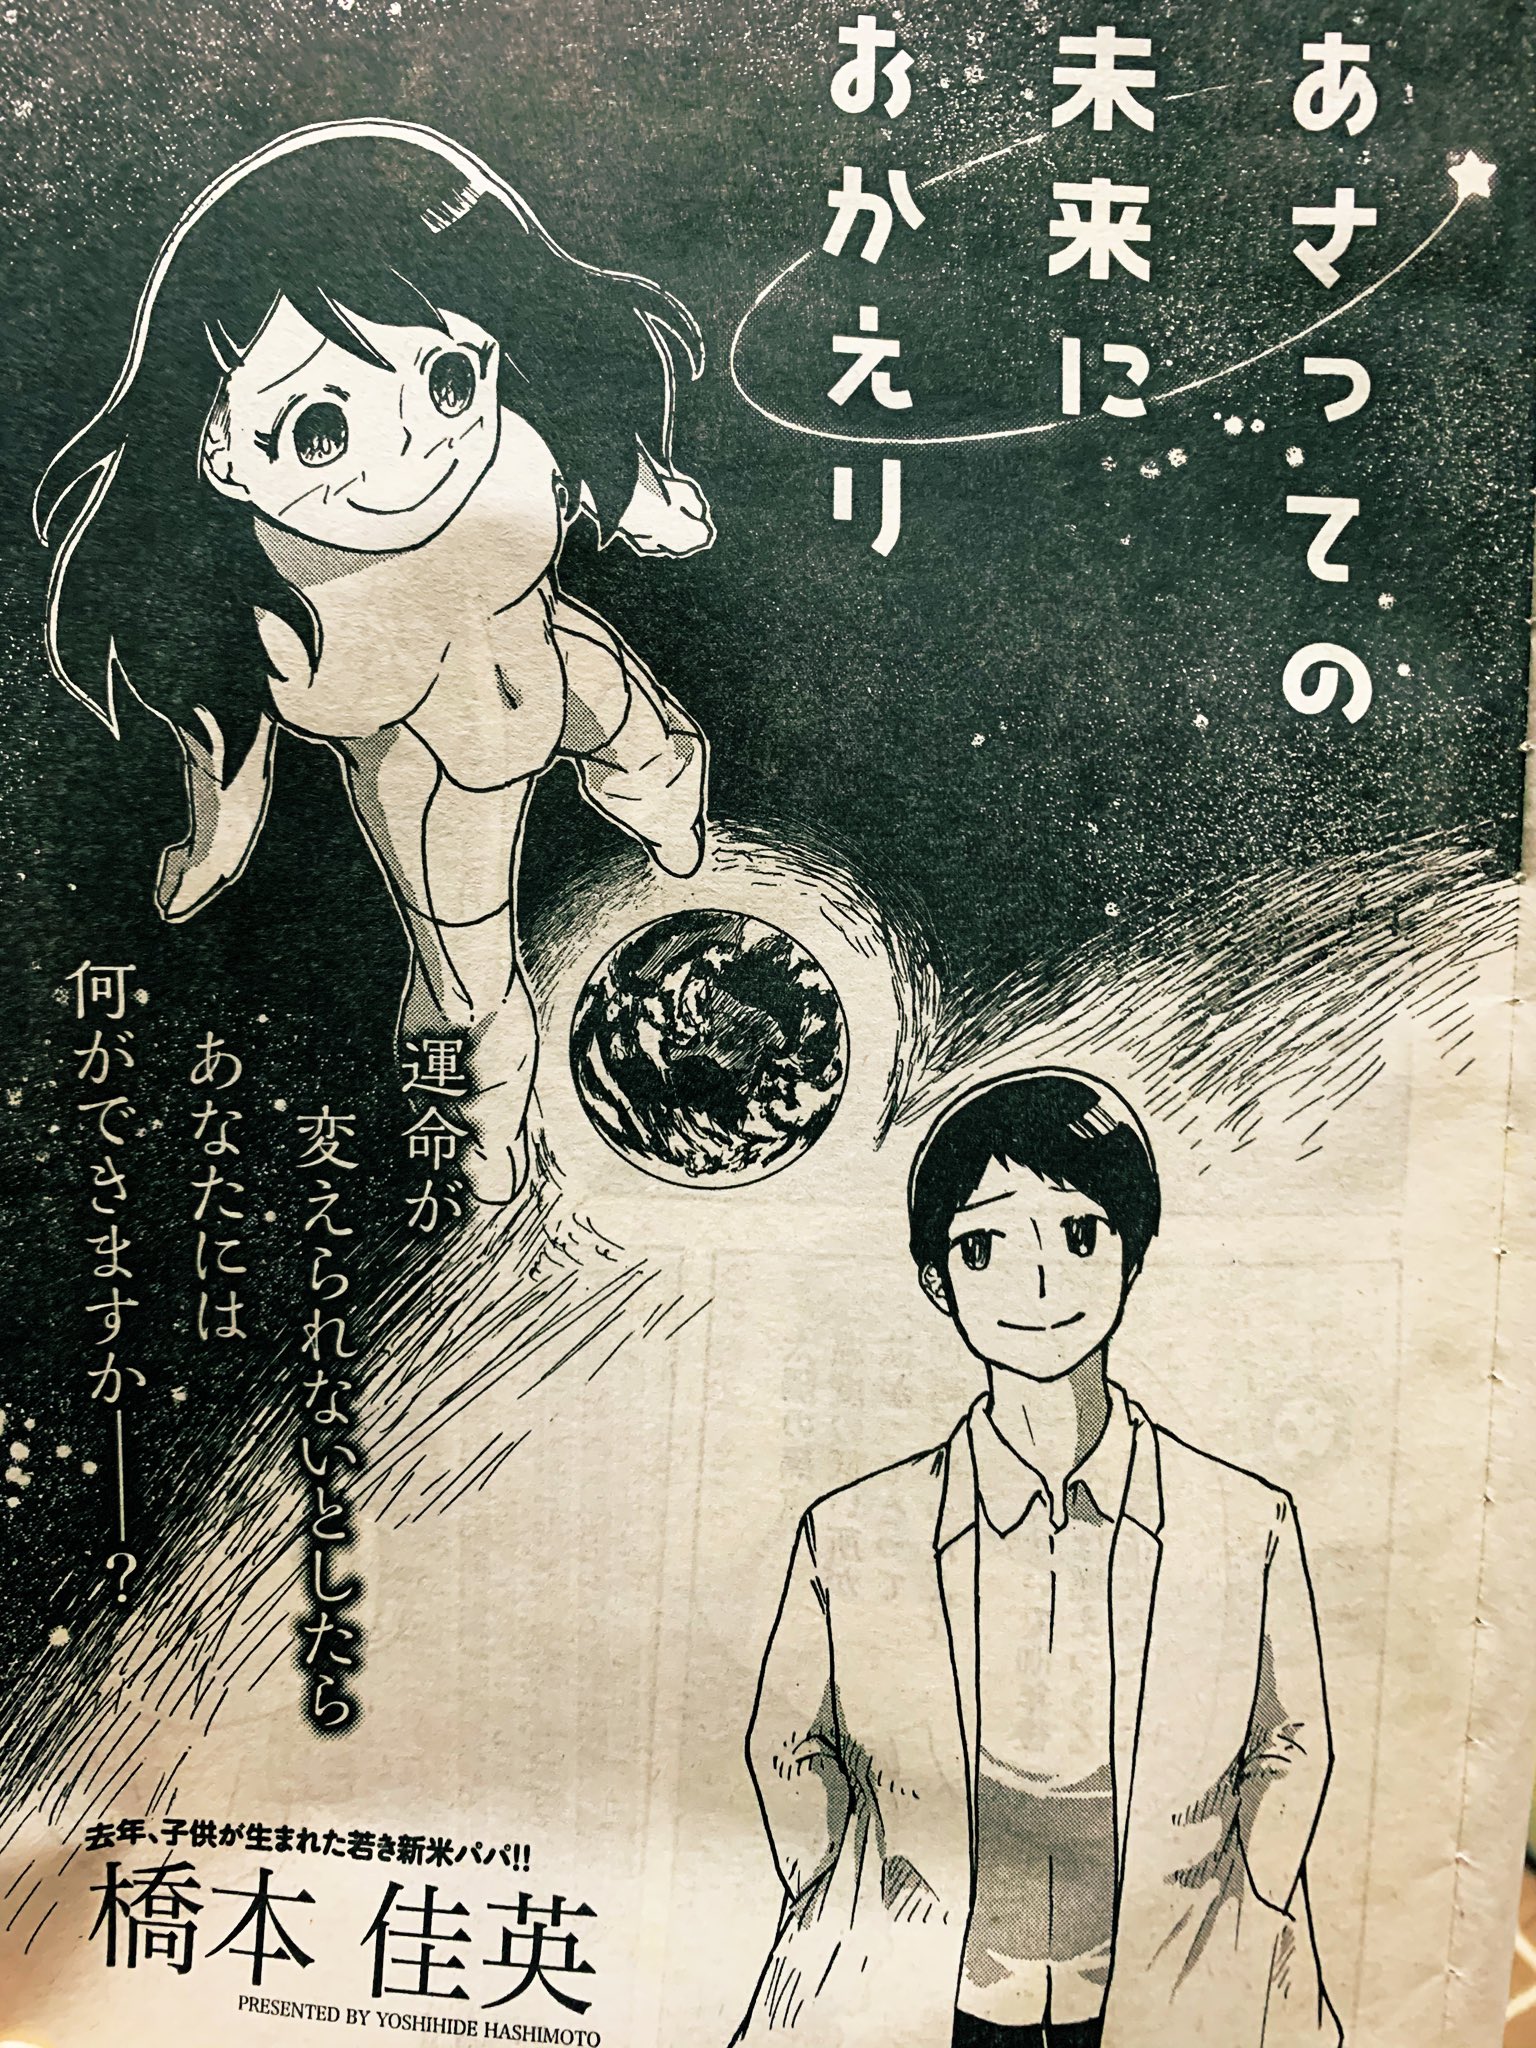 あさっての
未来に
おかえり
運命が
変えられないとしたら
あなたには
何ができますか──?
去年、子供が生まれた若き新米パパ!!
橋本 佳英
PRESENTED BY YOSHIHIDE HASHIMOTO